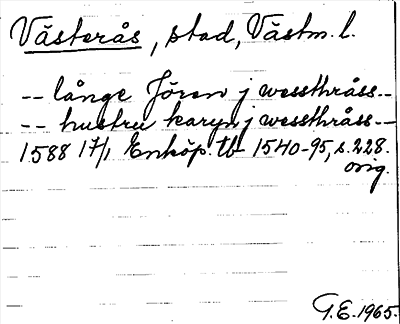 Västerås, stad, Västm. l.
-- långe Jören j wessthråss --
-- hustru karyn j wessthråss --
1588 17/1 Enköp. tb 1540-95, s. 228.
orig.
G.E. 1965.